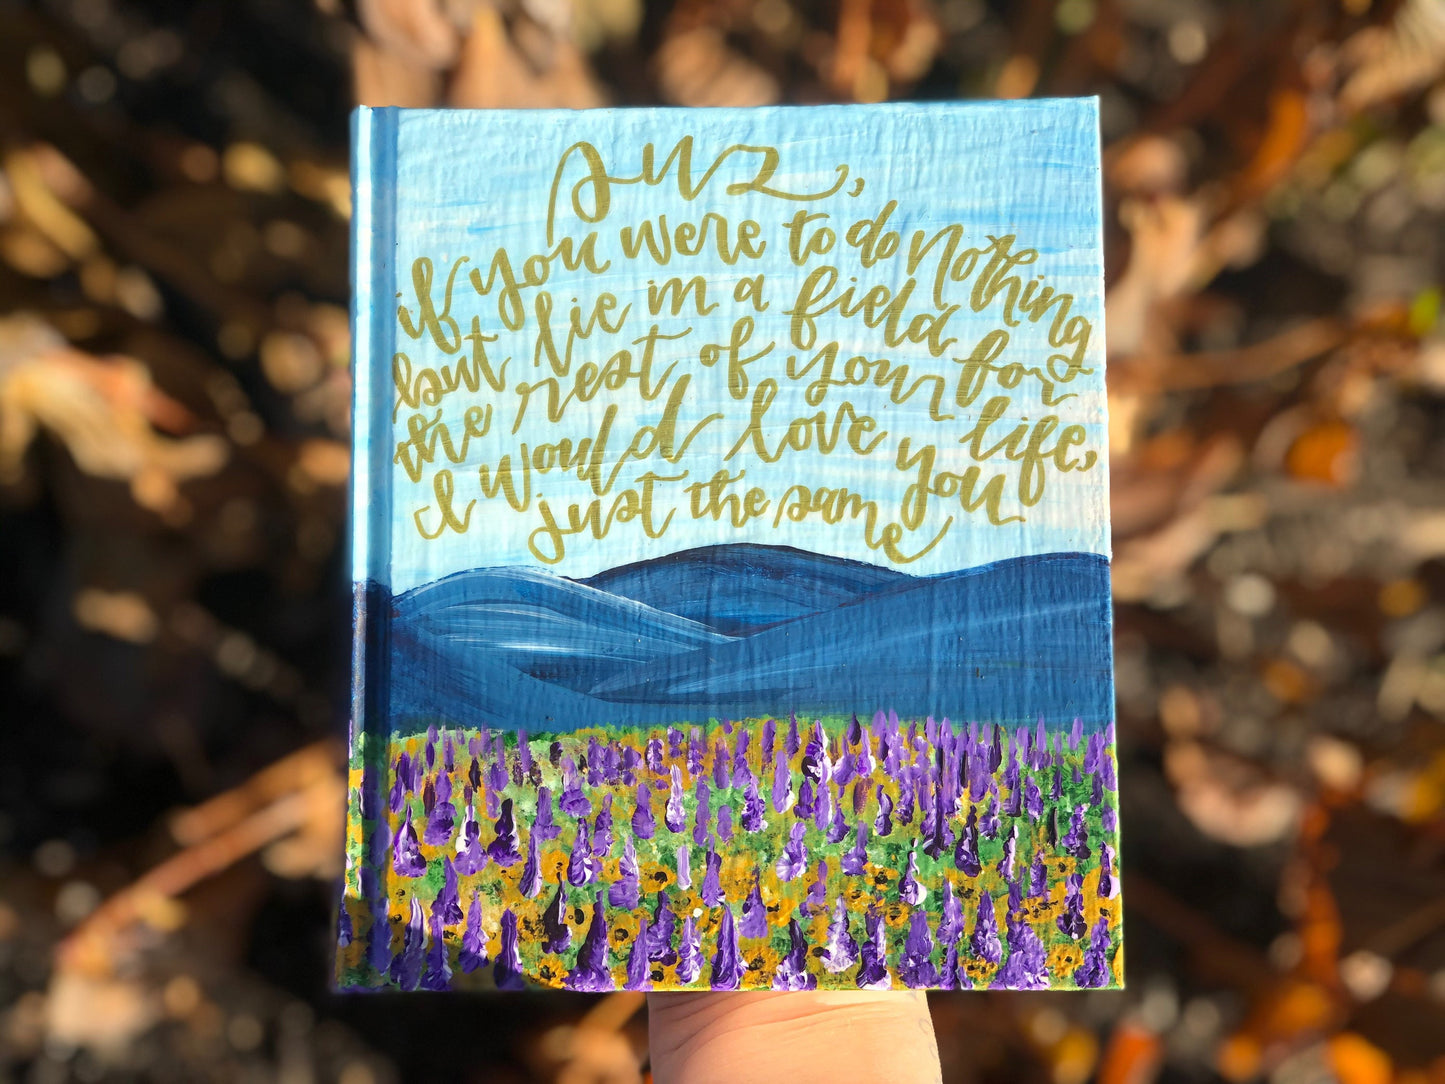 suz,
if you were to do nothing
but lie in a field for
the rest of your life,
I would love you
just the same